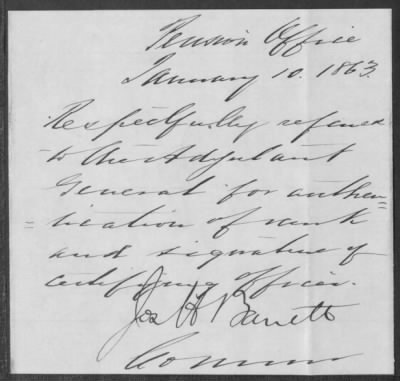 Pension Office
January 10. 1863.
Respectfully referred
to the Adjutant
General for authen=
=tication of rank
and signature of
certifying officer.
Jos H Barrett
Commr